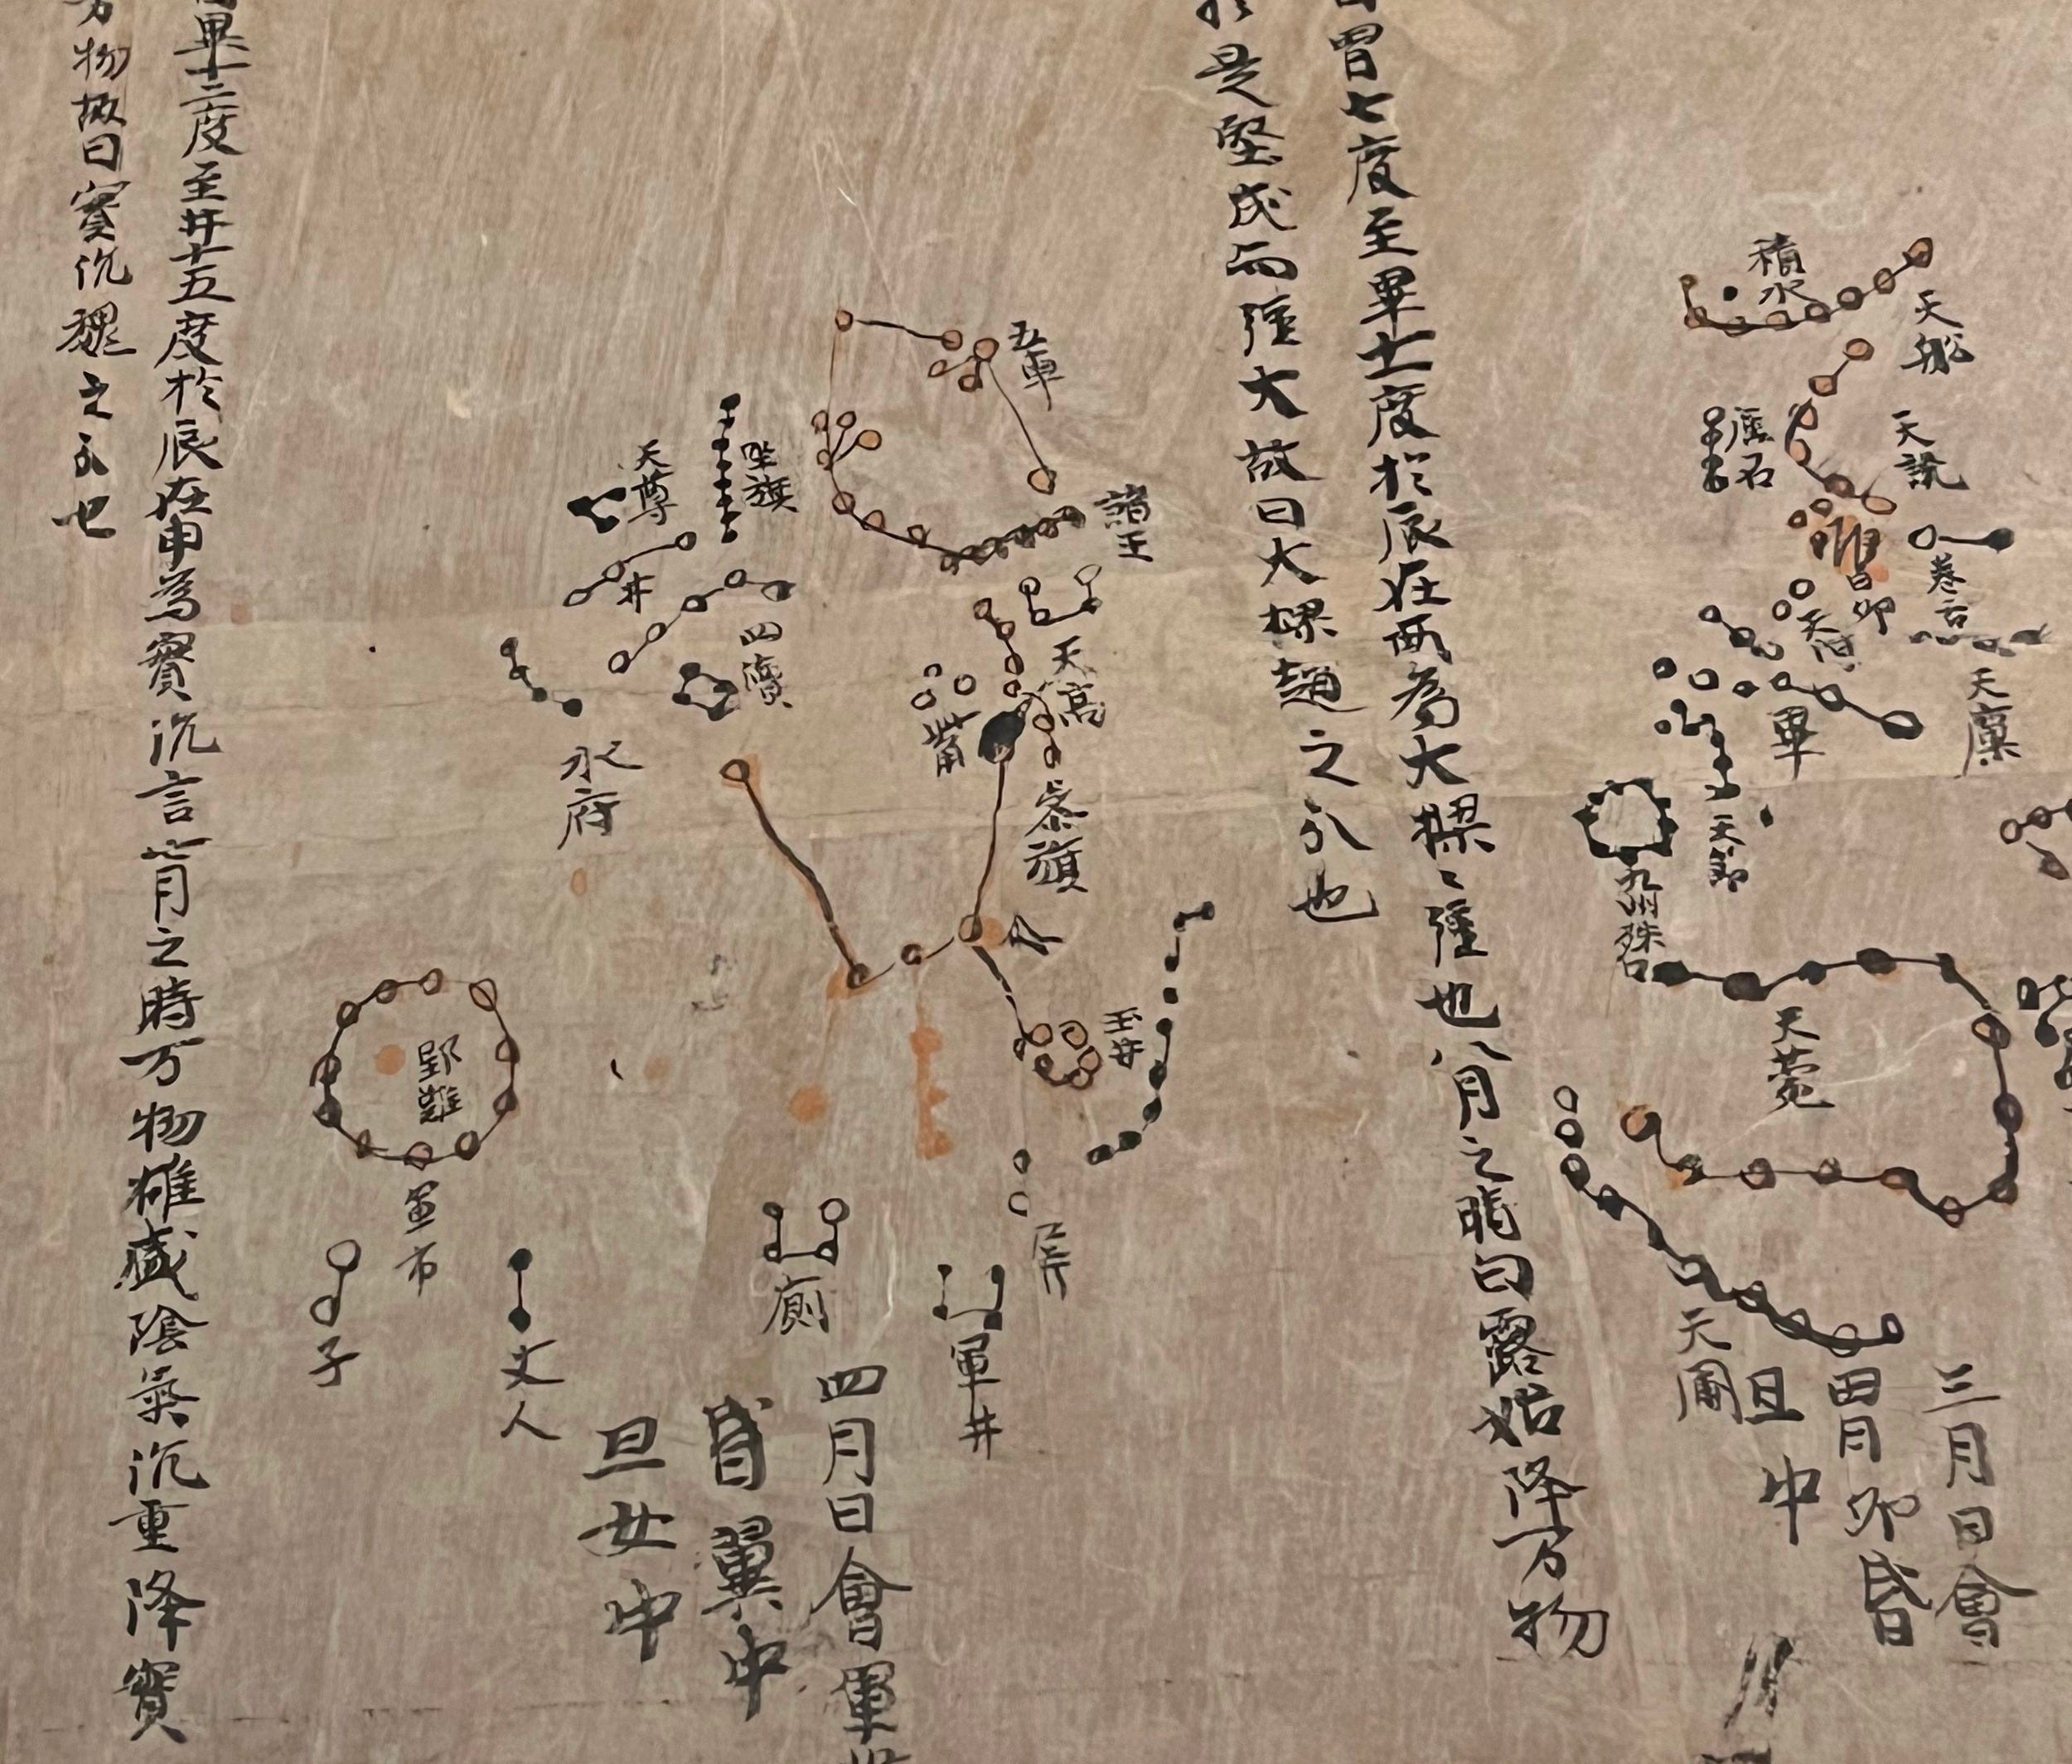 天船
積水
天讒
卷舌
礪石
昴
天廩
畢
天節
九州殊口
天菀
天園
三月日會
胃昴昏
旦中
胃七度至畢十一度於辰在酉為大樑樑強也八月之時白露始降万物
於是堅成而強大故曰大樑趙之分也
五車
諸王
坐旗
天尊
井
天高
四瀆
觜
水府
參旗
玉井
野雞
軍市
屏
廁
軍井
子
丈人
四月日會畢
昏翼中
旦女中
畢十二度至井十五度於辰在申為實沉言七月之時万物雄盛陰氣沉重降實
万物故曰實沉魏之分也